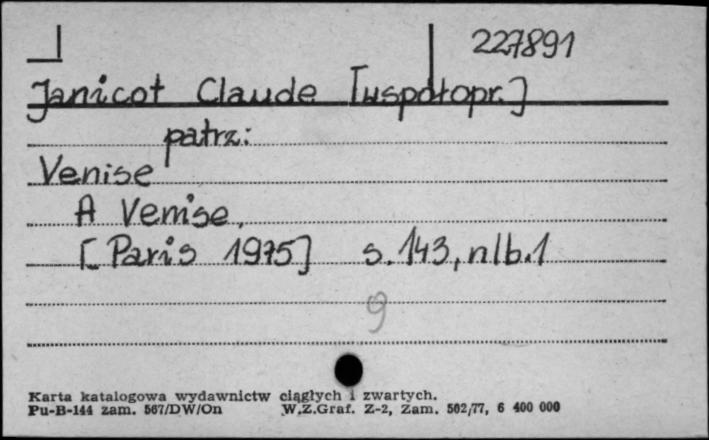 227891
Janicot Claude [współopr.]
patrz:
Venise
A Venise,
[Paris 1975] s. 143, nlb. 1
9
Karta katalogowa wydawnictw ciągłych i zwartych.
Pu-B-144 zam. 567/DW/On W.Z.Graf. Z-2, Zam. 502/77, 6 400 000